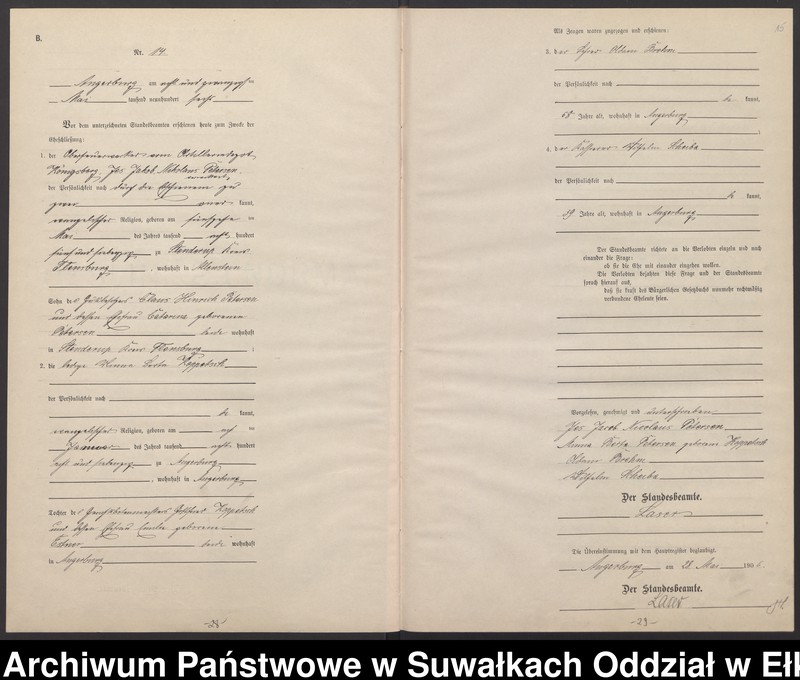 B.
Nr. 14.
Angerburg am acht und zwanzigsten
Mai tausend neunhundert sechs
Vor dem unterzeichneten Standesbeamten erschienen heute zum Zwecke der
Eheschließung:
1. der Oberfeuerwerker vom Artilleriedepot
Königsberg, Jes Jakob Nikolaus Petersen
der Persönlichkeit nach durch die
kannt,
evangelischer Religion, geboren am fünfzehn ten
Mai des Jahres tausend acht hundert
fünf und siebenzig zu Stenderup Kreis
Flensburg, wohnhaft in Allenstein
Sohn des Claus Hinrich Petersen
und dessen Ehefrau Catarina geborenen
Petersen beide wohnhaft
in Stenderup Kreis Flensburg;
2. die ledige Minna Berta Koppetsch
der Persönlichkeit nach
be kannt,
evangelischer Religion, geboren am ach ten
Januar des Jahres tausend acht hundert
acht und siebenzig zu Angerburg
, wohnhaft in Angerburg
Tochter des Koppetsch
und dessen Ehefrau geborene
beide wohnhaft
in Angerburg
-28-
15
Als Zeugen waren zugezogen und erschienen:
3. der Adam Brehm
der Persönlichkeit nach
be kannt,
68 Jahre alt, wohnhaft in Angerburg
;
4. der Wilhelm
der Persönlichkeit nach
be kannt,
39 Jahre alt, wohnhaft in Angerburg
Der Standesbeamte richtete an die Verlobten einzeln und nach
einander die Frage:
ob sie die Ehe mit einander eingehen wollen.
Die Verlobten bejahten diese Frage und der Standesbeamte
sprach hierauf aus,
daß sie kraft des Bürgerlichen Gesetzbuchs nunmehr rechtmäßig
verbundene Eheleute seien.
Vorgelesen, genehmigt und unterschrieben
Jes Jacob Nicolaus Petersen
Minna Berta Petersen geborene Koppetsch
Adam Brehm
Wilhelm
Der Standesbeamte.
Laser
Die Übereinstimmung mit dem Hauptregister beglaubigt.
Angerburg am 28. Mai 1906.
Der Standesbeamte.
Laser
-29-
Archiwum Państwowe w Suwałkach Oddział w Ełk